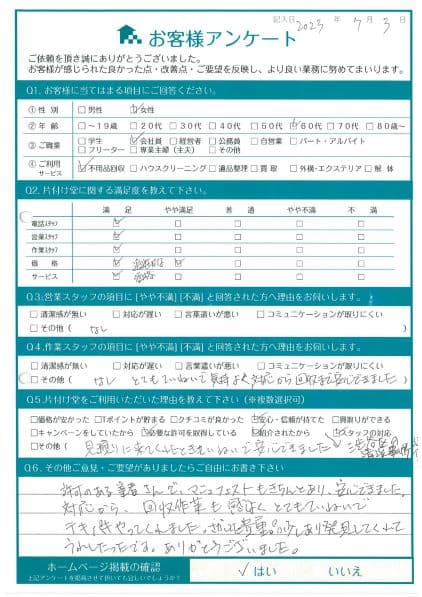 記入日 2023 年 7 月 3 日
お客様アンケート
ご依頼を頂き誠にありがとうございました。
お客様が感じられた良かった点・改善点・ご要望を反映し、より良い業務に努めてまいります。
Q1. お客様に当てはまる項目にご回答ください。
① 性 別 □男性 ☑女性
② 年 齢 □～19歳 □20代 □30代 □40代 □50代 ☑60代 □70代 □80歳～
③ ご職業 □学生 ☑会社員 □経営者 □公務員 □自営業 □パート・アルバイト
□フリーター □専業主婦(主夫) □その他
④ ご利用サービス ☑不用品回収 □ハウスクリーニング □遺品整理 □買取 □外構・エクステリア □解体
Q2. 片付け堂に関する満足度を教えて下さい。
満 足 やや満足 普 通 やや不満 不 満
電話スタッフ ☑ □ □ □ □
営業スタッフ ☑ □ □ □ □
作業スタッフ ☑ □ □ □ □
価 格 ☑ ☑ □ □ □
サービス ☑ □ □ □
Q3. 営業スタッフの項目に [やや不満] [不満] と回答された方へ理由をお伺いします。
□清潔感が無い □対応が遅い □言葉遣いが悪い □コミュニケーションが取りにくい
□その他 ( なし )
Q4. 作業スタッフの項目に [やや不満] [不満] と回答された方へ理由をお伺いします。
□清潔感が無い □対応が遅い □言葉遣いが悪い □コミュニケーションが取りにくい
□その他 ( なし とてもていねいで気持よく対応から回収まで安心できました )
Q5. 片付け堂をご利用いただいた理由を教えて下さい (※複数選択可)
□価格が安かった □Tポイントが貯まる □クチコミが良かった ☑安心・信頼が持てた □買取りができる
□キャンペーンをしていたから ☑必要な許可を取得している ☑紹介されたから ☑スタッフの対応
□その他 ( 見積りに来てくれたときもていねいで安心できました
Q6. その他ご意見・ご要望がありましたらご自由にお書き下さい
許可のある業者さんで、マニュフェストもきちんとあり、安心できました。
対応から、回収作業も 感じよく とてもていねいで
テキパキやってくれました。 貴重品 あり発見してくれて
うれしかったです。ありがとうございました。
ホームページ掲載の確認
上記アンケートを掲載させて頂いても宜しいでしょうか?
✓ はい いいえ